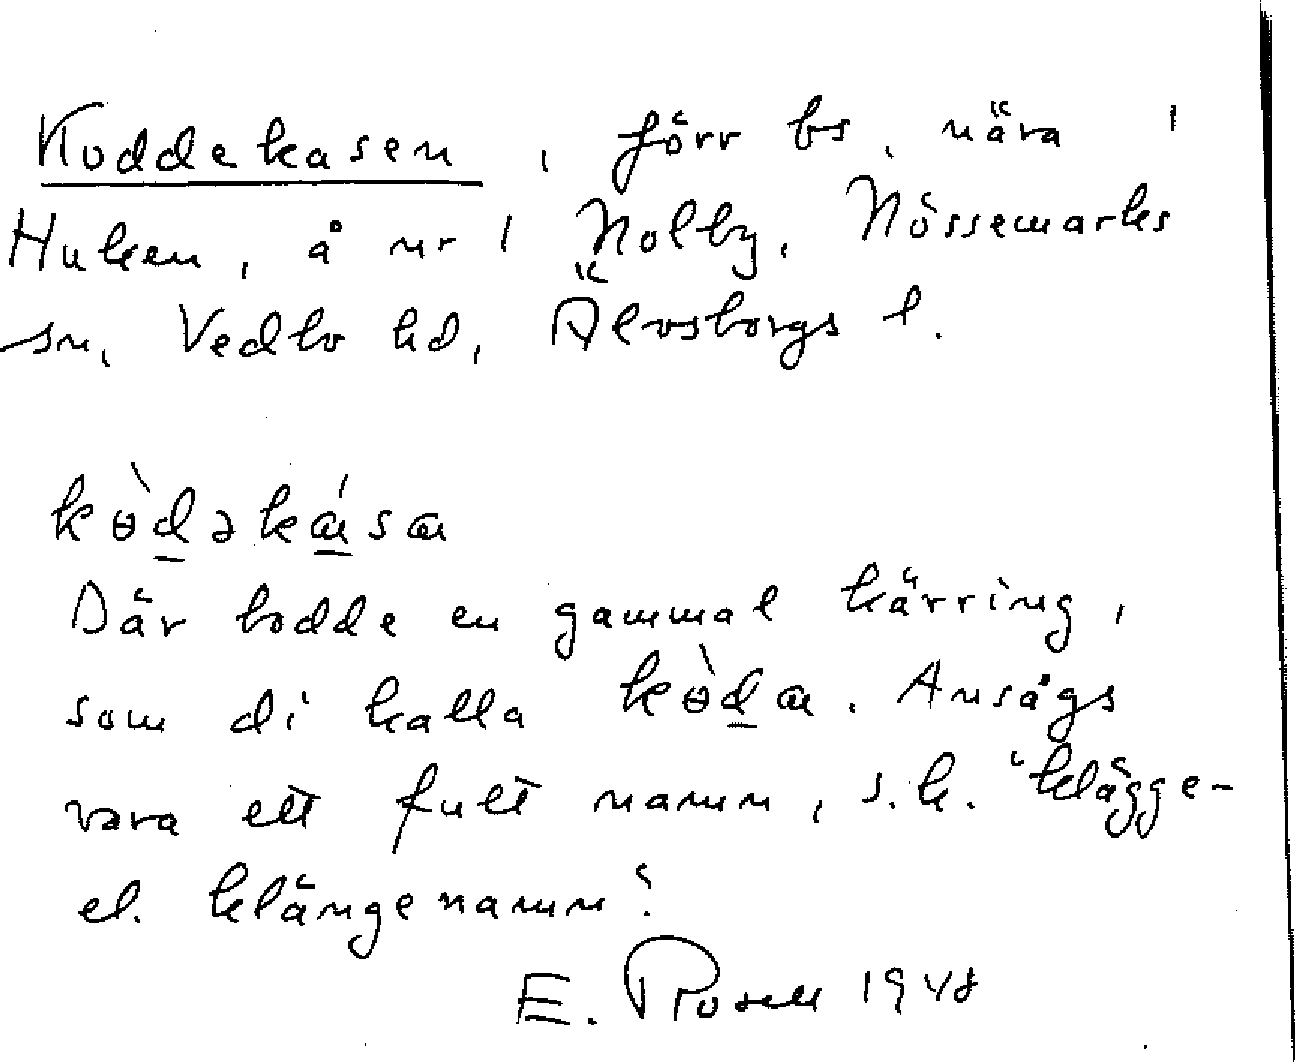 Koddekasen, förr bs, nära 1
Huken, å nr 1 Nolby, Nössemarks
sn, Vedbo hd, Älvsborgs l.
kɵ̀d̲əkɑ̲́sɑ
Där bodde en gammal kärring,
som di kalla kɵ̀d̲ɑ. Ansågs
vara ett fult namn, s.k. "klägge-
el. klängenamn".
E. Rosell 1948